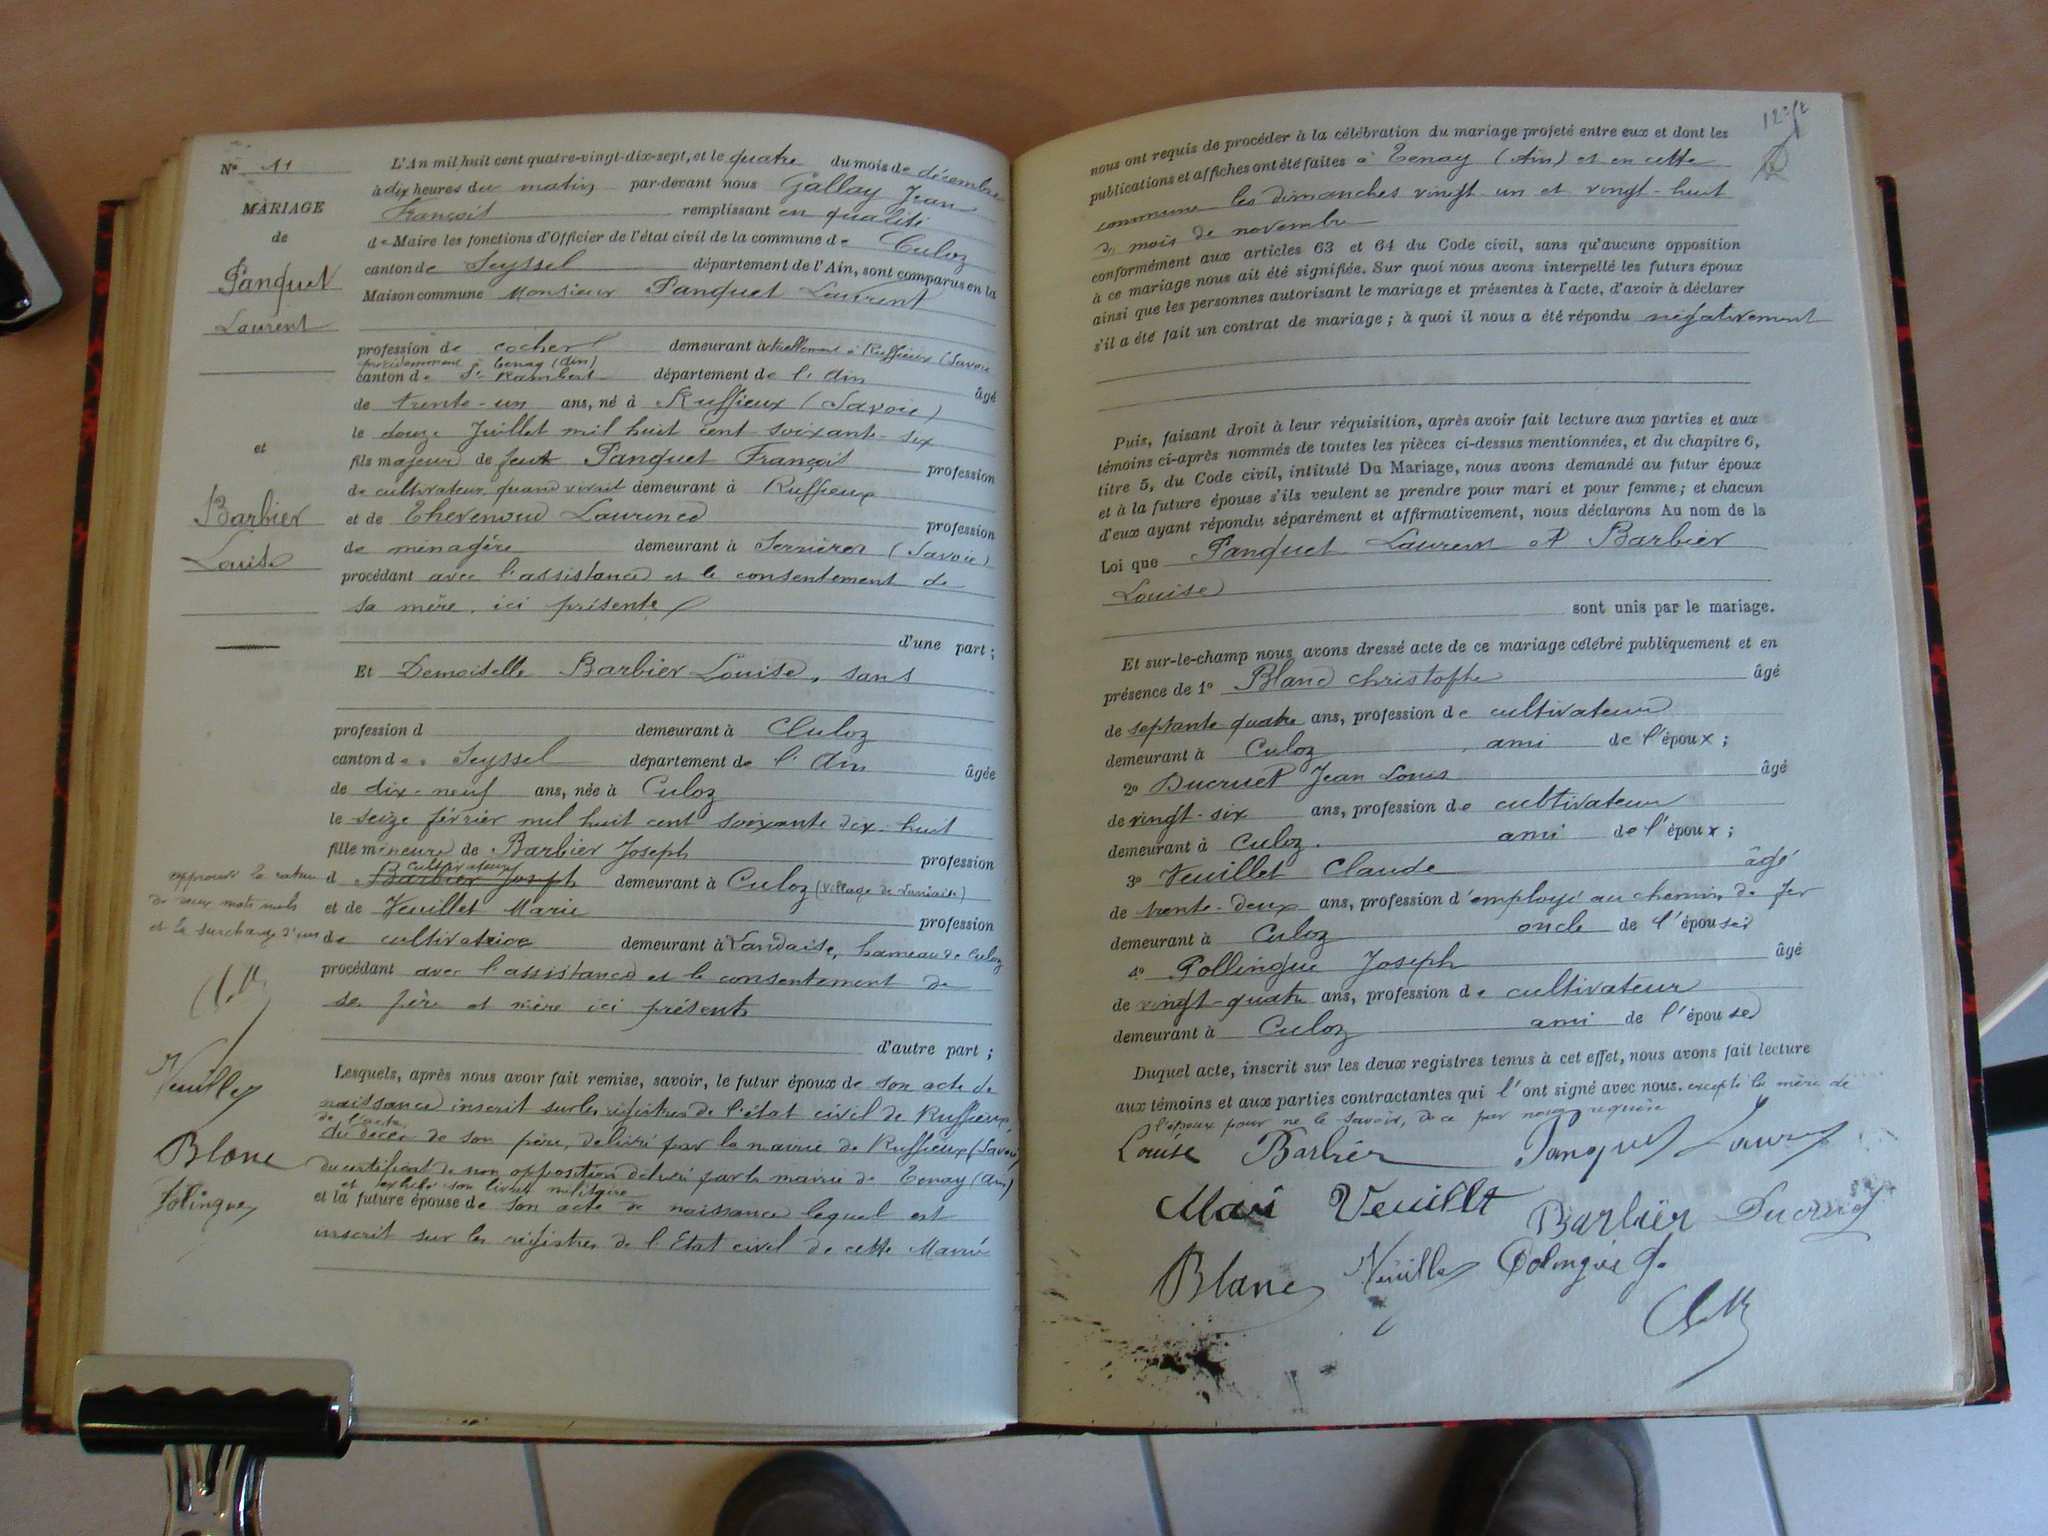 Nº 11
MARIAGE
de
Panquet
Laurent
et
Barbier
Louise
L'An mil huit cent quatre-vingt-dix-sept, et le quatre du mois de décembre
à dix heures du matin par-devant nous Gallay Jean
François remplissant en qualité
de Maire les fonctions d'Officier de l'état civil de la commune de Culoz
canton de Seyssel département de l'Ain, sont comparus en la
Maison commune Monsieur Panquet Laurent
profession de cocher demeurant actuellement à Ruffieux (Savoie
précédemment à Tenay (Ain)
canton de St Rambert département de l'Ain âgé
de trente-un ans, né à Ruffieux (Savoie)
le douze Juillet mil huit cent soixante-six
fils majeur de feu Panquet François profession
de cultivateur quand vivait demeurant à Ruffieux
et de Thevenoud Laurence profession
de ménagère demeurant à Serrières (Savoie)
procédant avec l'assistance et le consentement de
sa mère ici présente
d'une part ;
Et Demoiselle Barbier Louise, sans
profession d demeurant à Culoz
canton de Seyssel département de l'Ain âgée
de dix-neuf ans, née à Culoz
le seize février mil huit cent soixante dix-huit
fille mineure de Barbier Joseph profession
cultivateur
d Barbier Joseph demeurant à Culoz (village de
et de Veuillet Marie profession
de cultivatrice demeurant à Landaise, hameau de Culoz
procédant avec l'assistance et le consentement de
se père et mère ici présents
d'autre part ;
approuvé la rature
de deux mots nuls
et la surcharge d'un
Veuillet
Blanc
Polingue
Lesquels, après nous avoir fait remise, savoir, le futur époux de son acte de
naissance inscrit sur les régistres de l'état civil de Ruffieux,
de l'acte
du décès de son père, délivré par la mairie de Ruffieux (Savoie)
du certificat de non opposition délivré par la mairie de Tenay (Ain)
et exhibé son livret militaire
et la future épouse de son acte de naissance lequel est
inscrit sur les régistres de l'Etat civil de cette Mairie
nous ont requis de procéder à la célébration du mariage projeté entre eux et dont les
publications et affiches ont été faites à Tenay (Ain) et en cette
commune les dimanches vingt un et vingt-huit
du mois de novembre
conformément aux articles 63 et 64 du Code civil, sans qu'aucune opposition
à ce mariage nous ait été signifiée. Sur quoi nous avons interpellé les futurs époux
ainsi que les personnes autorisant le mariage et présentes à l'acte, d'avoir à déclarer
s'il a été fait un contrat de mariage ; à quoi il nous a été répondu négativement
Puis, faisant droit à leur réquisition, après avoir fait lecture aux parties et aux
témoins ci-après nommés de toutes les pièces ci-dessus mentionnées, et du chapitre 6,
titre 5, du Code civil, intitulé Du Mariage, nous avons demandé au futur époux
et à la future épouse s'ils veulent se prendre pour mari et pour femme ; et chacun
d'eux ayant répondu séparément et affirmativement, nous déclarons Au nom de la
Loi que Panquet Laurent et Barbier
Louise
sont unis par le mariage.
Et sur-le-champ nous avons dressé acte de ce mariage célébré publiquement et en
présence de 1º Blanc Christophe âgé
de septante-quatre ans, profession de cultivateur
demeurant à Culoz ami de l'époux ;
2º Ducruet Jean Louis âgé
de vingt-six ans, profession de cultivateur
demeurant à Culoz. ami de l'époux ;
3º Veuillet Claude âgé
de trente-deux ans, profession d'employé au chemin de fer
demeurant à Culoz oncle de l'épouse
4º Pollingue Joseph âgé
de vingt-quatre ans, profession de cultivateur
demeurant à Culoz ami de l'épouse
Duquel acte, inscrit sur les deux registres tenus à cet effet, nous avons fait lecture
aux témoins et aux parties contractantes qui l'ont signé avec nous. excepté la mère de
l'époux pour ne le savoir, de ce par nous requise
Louise Barbier Panquet Laurent
Mari Veuillet Barbiër Ducruet
Blanc Veuillet Polingue J.